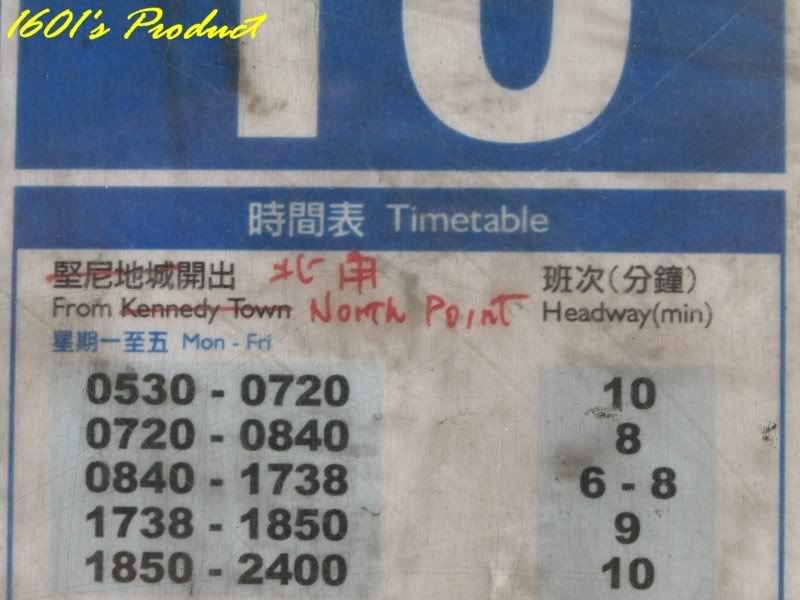 1601's Product
10
時間表 Timetable
堅尼地城開出 北角 班次(分鐘)
From Kennedy Town North Point Headway(min)
星期一至五 Mon - Fri
0530 - 0720 10
0720 - 0840 8
0840 - 1738 6 - 8
1738 - 1850 9
1850 - 2400 10